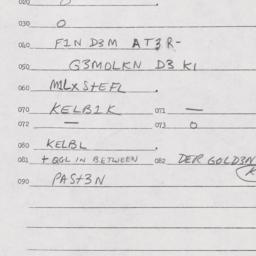 020 O
030 O
040 F1ND3M AT3R-
050 G3MOLKN D3 KI
060 M1LXStEFL .
070 KELB1K 071 —
072 — 073 O
080 KELBL .
081 + QGL IN BETWEEN 082 DER GOLD3N
090 PASt3N